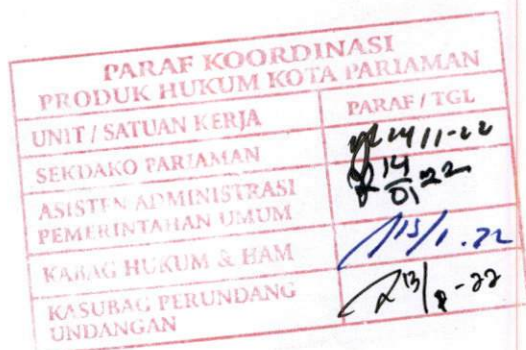 PARAF KOORDINASI
PRODUK HUKUM KOTA PARIAMAN
UNIT / SATUAN KERJA PARAF / TGL
SEKDAKO PARIAMAN 14/1-22
ASISTEN ADMINISTRASI
PEMERINTAHAN UMUM 14/01 22
KABAG HUKUM & HAM 13/1.22
KASUBAG PERUNDANG
UNDANGAN 13/ -22